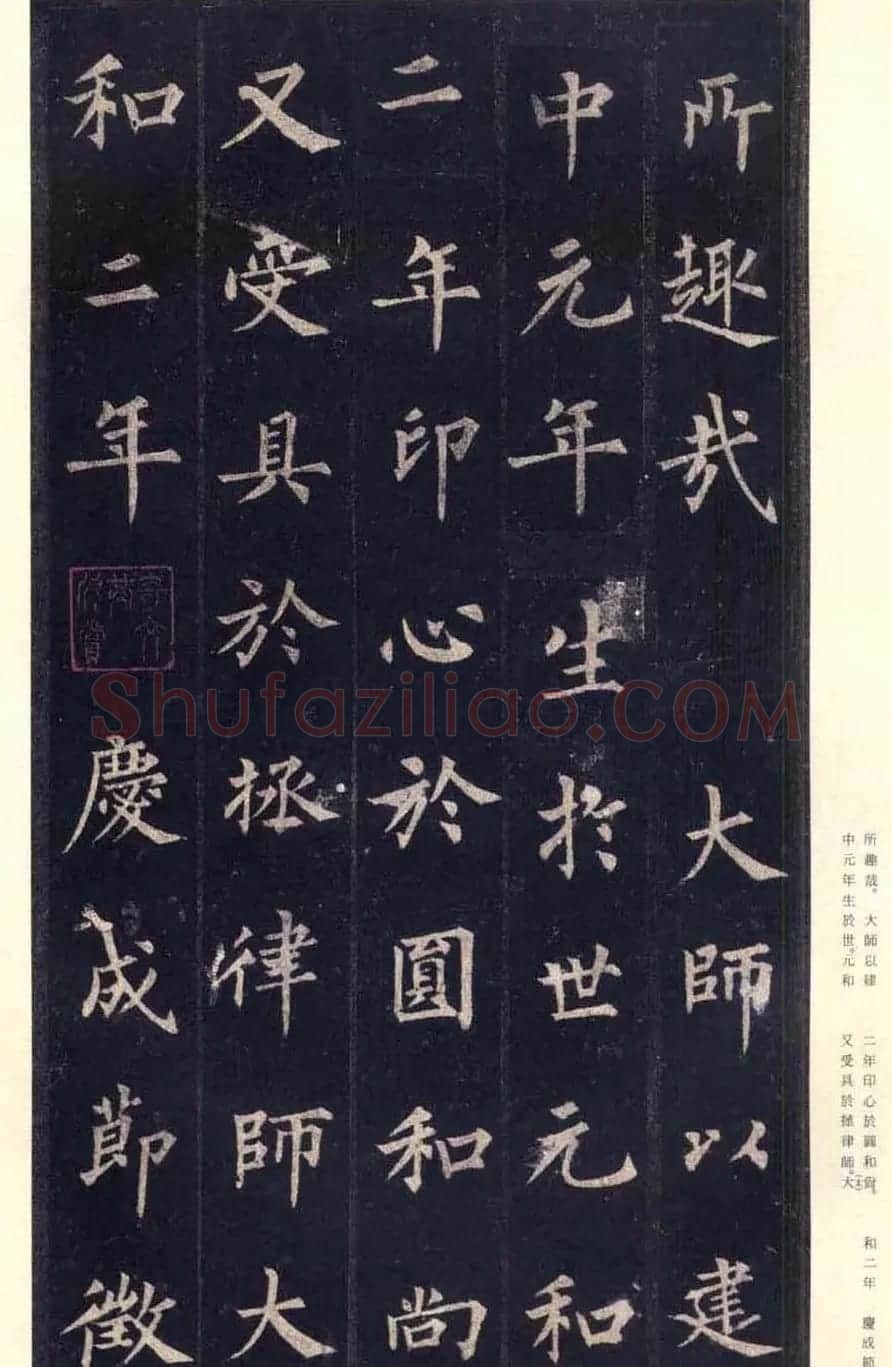 所趣哉大師以建
中元年生於世元和
二年印心於圓和尚
又受具於拯律師大
和二年慶成節徵
Shufaziliao.COM
所趣哉。大師以建
中元年生於世。元和
二年印心於圓和尚。
又受具於拯律師。大
和二年 慶成節